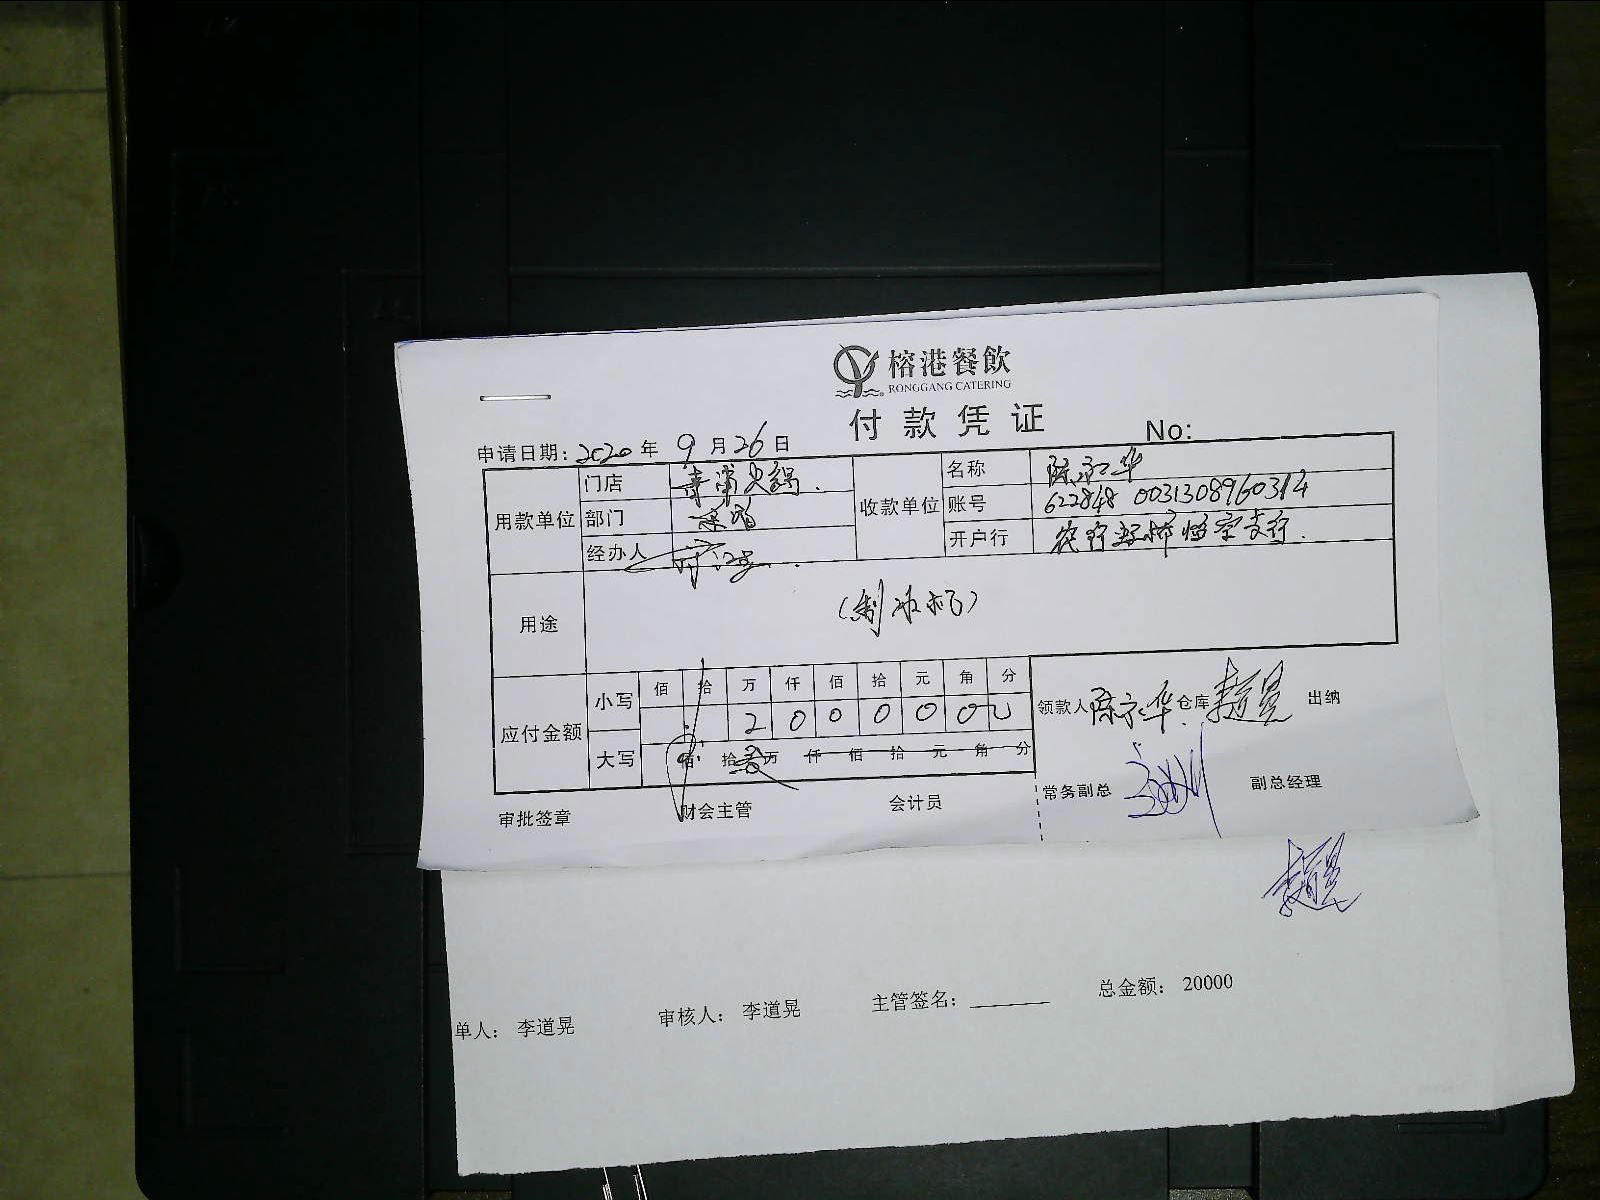 榕港餐飲
RONGGANG CATERING
付款凭证
No:
申请日期：2020年9月26日
用款单位 门店 火锅. 收款单位 名称 陈永华
部门 账号 622848 0031308960314
经办人 开户行 农行 支行.
用途 (制冰机)
应付金额 小写 佰 拾 万 仟 佰 拾 元 角 分
2 0 0 0 0 0 0
大写 佰 拾 万 仟 佰 拾 元 角 分
领款人 陈永华 仓库 李道晃 出纳
常务副总 副总经理
审批签章 财会主管 会计员
李道晃
单人： 李道晃 审核人： 李道晃 主管签名： 总金额： 20000